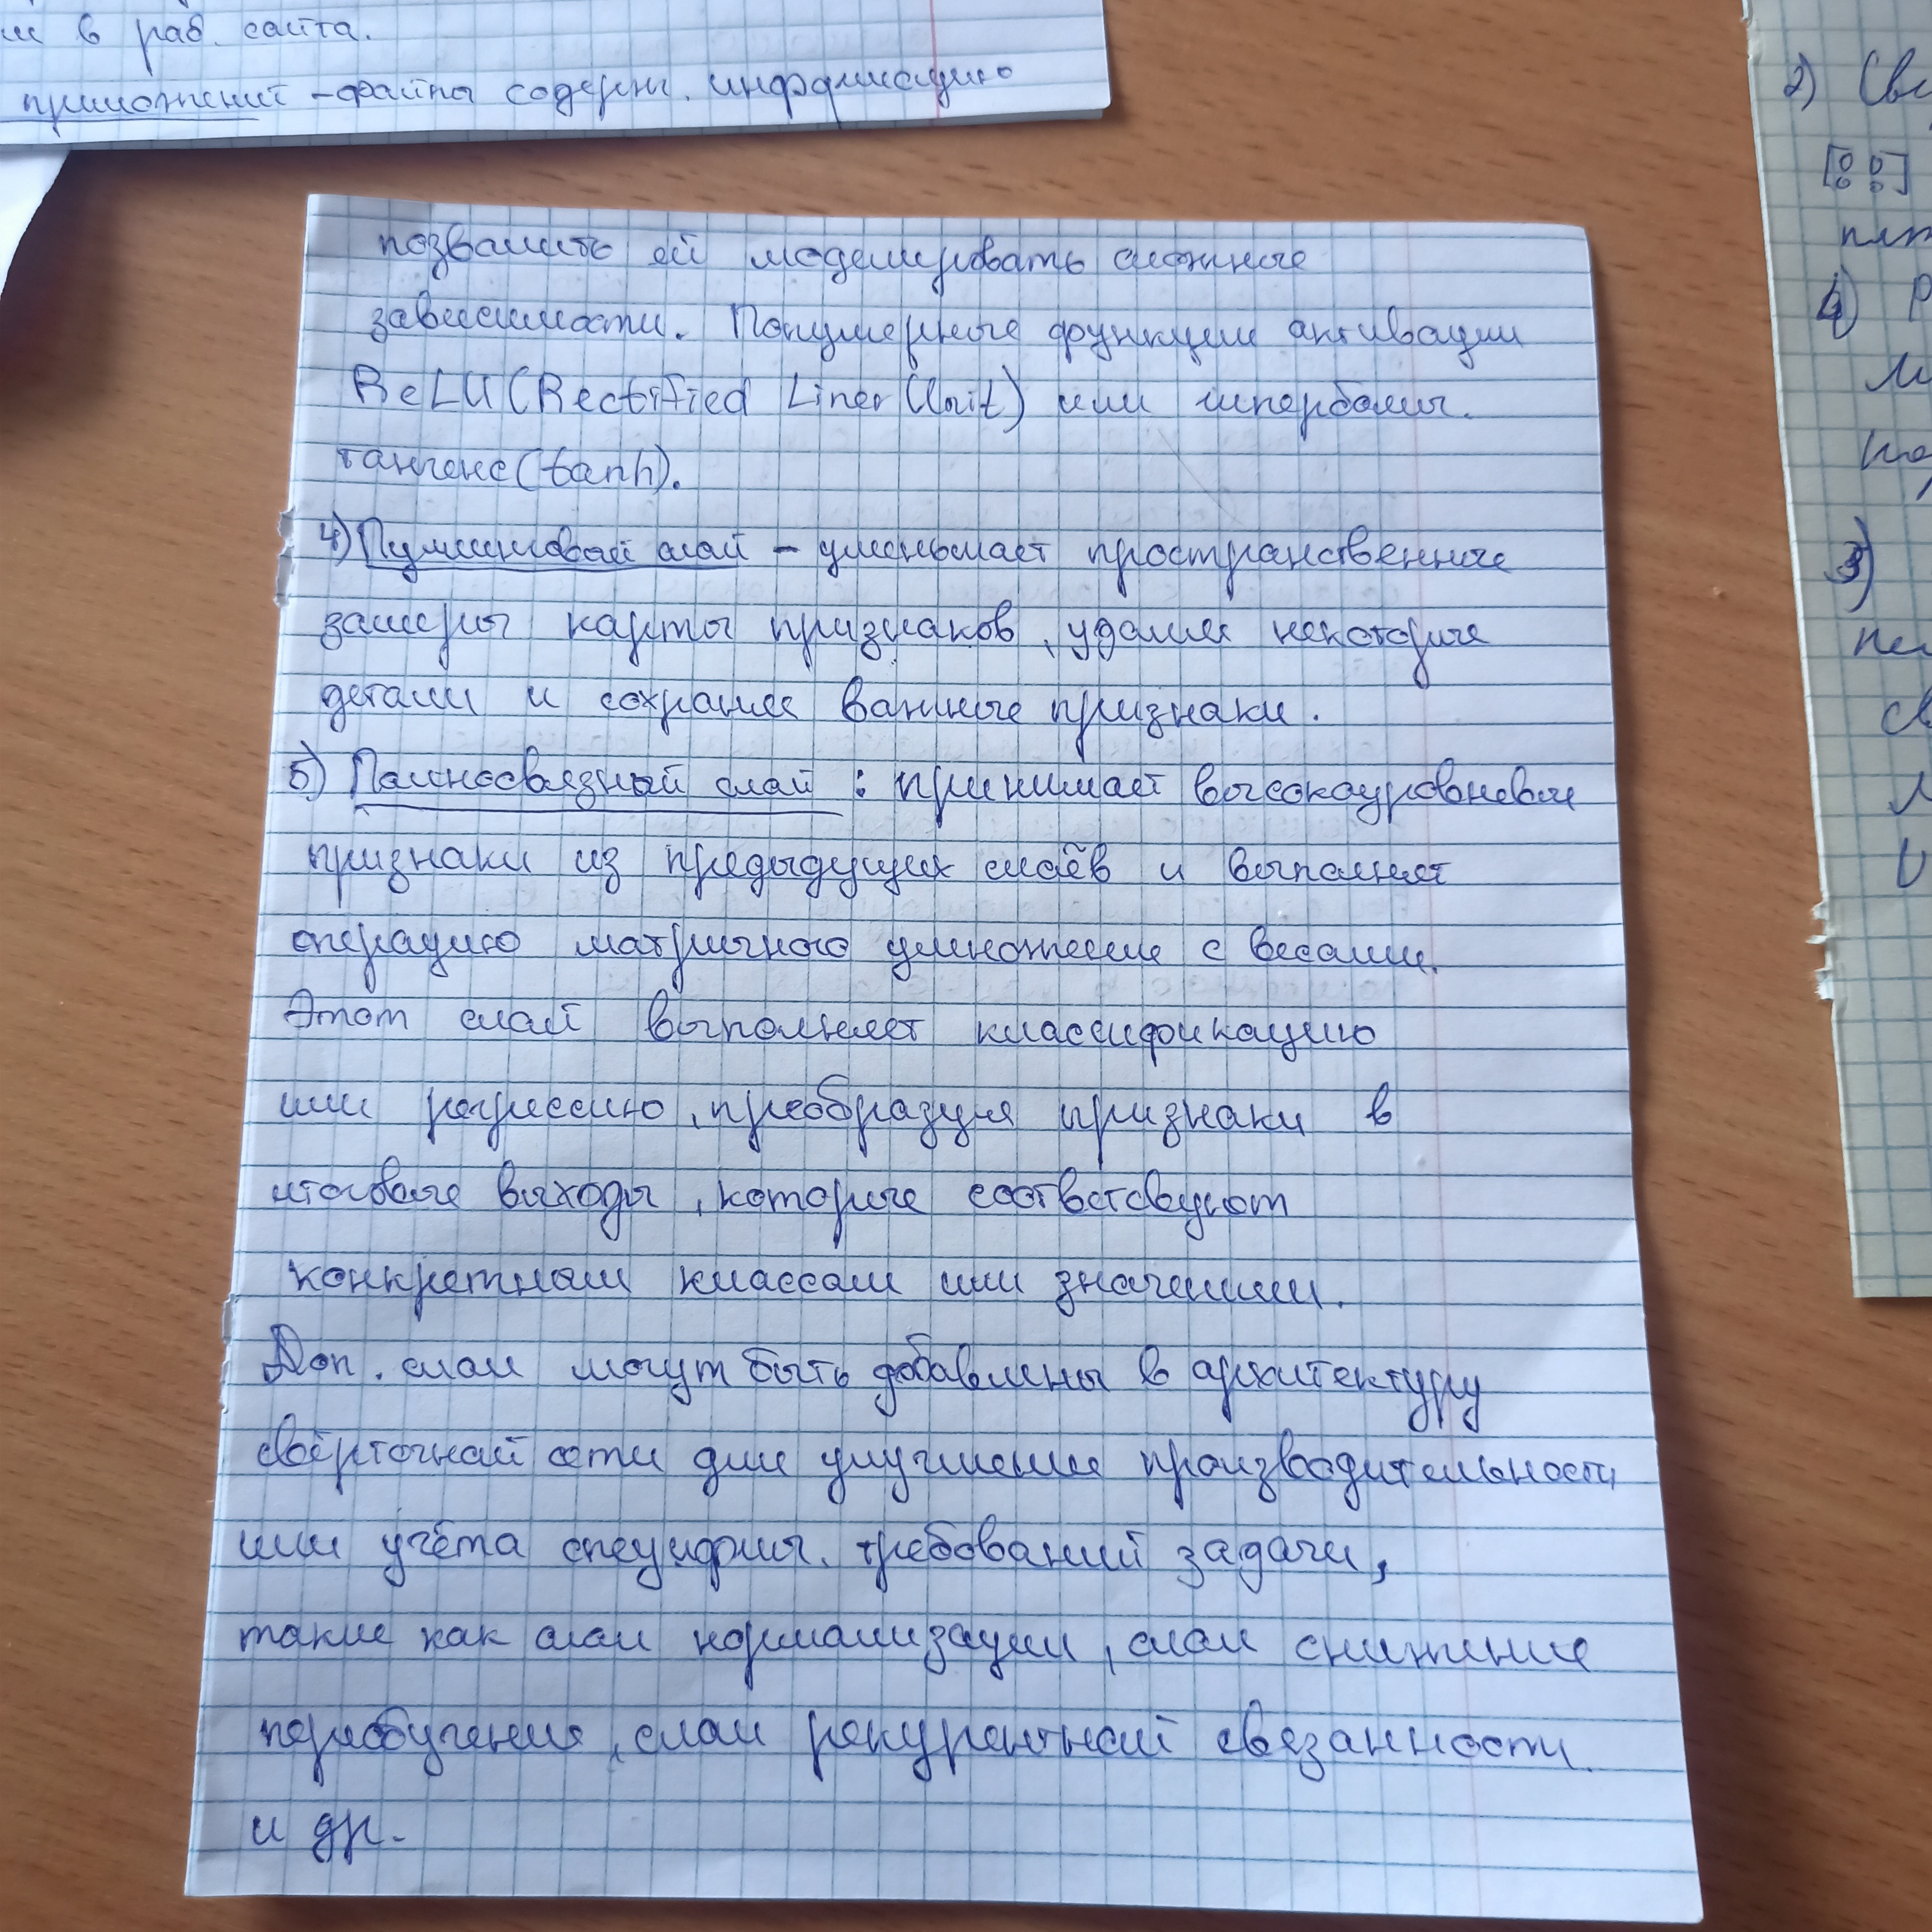 в раб. сайта.
приложений - файлы содерж. информацию
позволить ей моделировать сложные
зависимости. Популярные функции активации
ReLU (Rectified Liner Unit) или гиперболич.
тангенс (tanh).
4) Пулинговый слой - уменьшает пространственные
размеры карты признаков, удаляя некоторые
детали и сохраняя важные признаки.
5) Полносвязный слой: принимает высокоуровневые
признаки из предыдущих слоёв и выполняет
операцию матричного умножения с весами.
Этот слой выполняет классификацию
или регрессию, преобразуя признаки в
итоговые выходы, которые соответствуют
конкретным классам или значениям.
Доп. слои могут быть добавлены в архитектуру
свёрточной сети для улучшения производительности
или учёта специфич. требований задачи,
такие как слои нормализации, слои снижения
переобучения, слои рекурентной связанности
и др.
2)
4)
3)